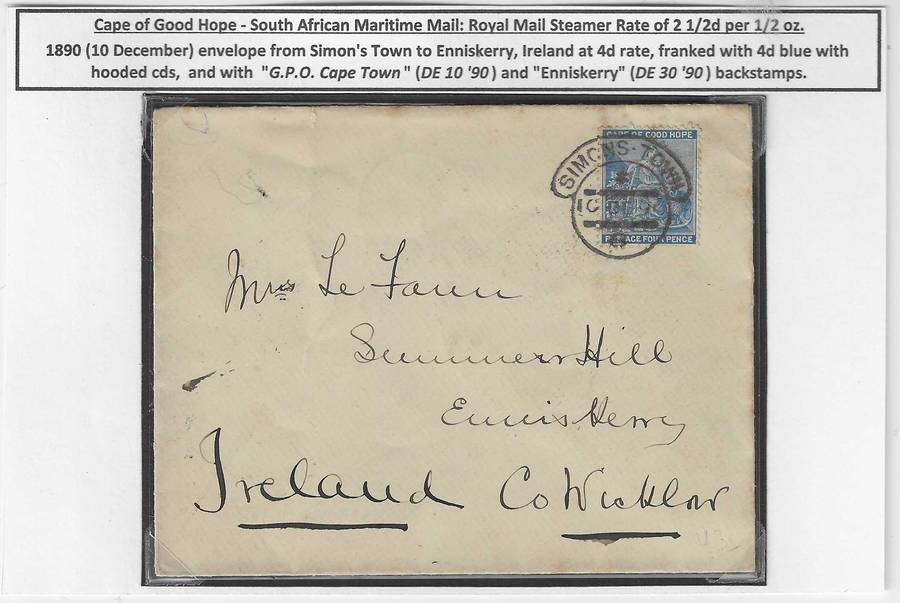 Cape of Good Hope - South African Maritime Mail: Royal Mail Steamer Rate of 2 1/2d per 1/2 oz.
1890 (10 December) envelope from Simon's Town to Enniskerry, Ireland at 4d rate, franked with 4d blue with
hooded cds, and with "G.P.O. Cape Town" (DE 10 '90) and "Enniskerry" (DE 30 '90) backstamps.
CAPE OF GOOD HOPE
SIMONS-TOWN
POSTAGE FOUR PENCE
Mrs Le Fanu
Summer Hill
Enniskerry
Ireland Co Wicklow